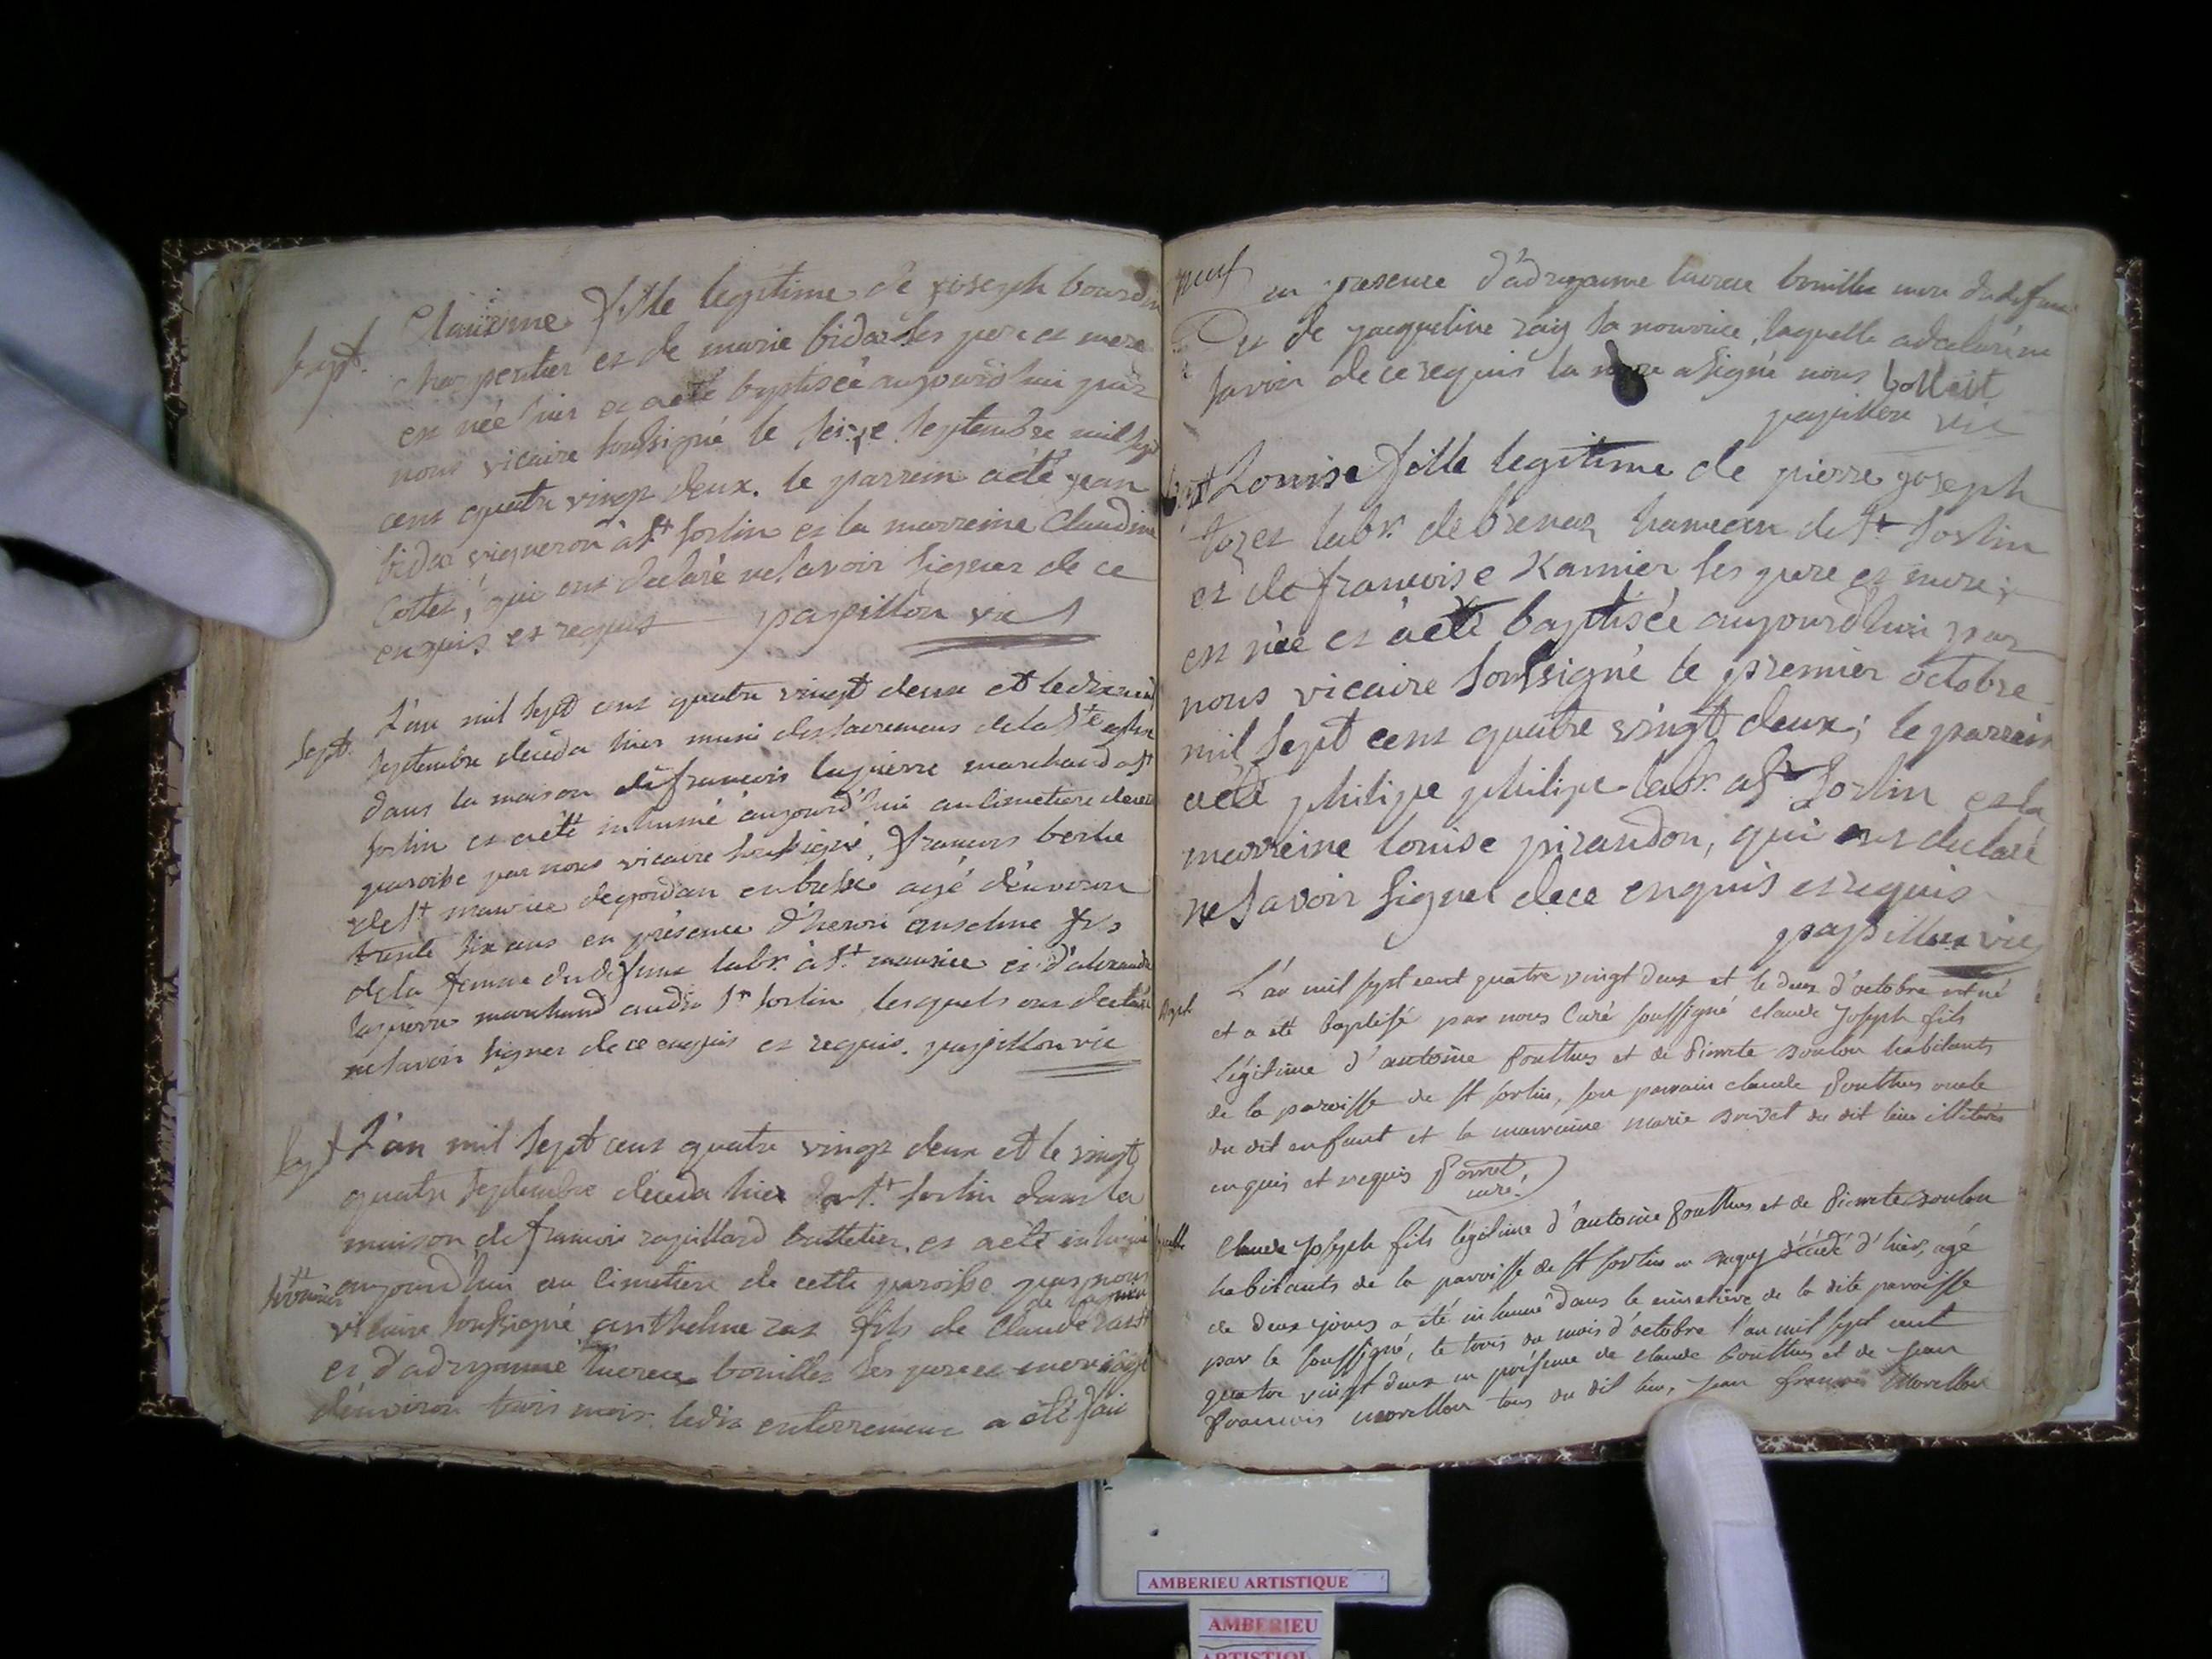 bapt. Claudine fille legitime de joseph bourdin
charpentier et de marie bidat ses pere et mere
est née hier et a été baptisée aujourdhui par
nous vicaire soussigné le seize septembre mil sept
cent quatre vingt deux. le parrein a été jean
bidat vigneron a st sorlin et la marreine Claudine
Cottet, qui ont declaré ne savoir signer de ce
enquis et requis papillon vic
Sept. L'an mil sept cent quatre vingt deux et le dix neuf
septembre déceda hier muni des sacremens de la Ste eglise
dans la maison de francois laguerre marchand a st
sorlin et a été inhumé aujourd'hui au cimetiere de cette
paroisse par nous vicaire soussigné, francois
de st maurice de gourdan en bresse agé d'environ
trente six ans en présence d'henri anselme fils
de la femme du defunt labr. à st. maurice et d'alexandre
laguerre marchand audit st sorlin lesquels ont declaré
ne savoir signer de ce enquis et requis. papillon vic
sept L'an mil sept cent quatre vingt deux et le vingt
quatre septembre déceda hier à st. sorlin dans la
maison de francois rapillard battelier, et a été inhumé
aujourd'hui au cimetiere de cette paroisse par nous
vicaire soussigné anthelme rax fils de Claude rax
de lagnieu
et d'adryanne lucrece bouillet ses pere et mere agé
d'environ trois mois. ledit enterrement a été fait
neuf
en presence d'adryanne lucrece bouillet mere du defunt
et de jacqueline raix sa nourrice, laquelle a declaré ne
savoir de ce requis la mere a signé nous bolleit
papillon vic
bapt Louise fille legitime de pierre joseph
tozet labr. de brenaz hameau de st sorlin
et de francoise Kamier ses pere et mere;
est née et a été baptisée aujourd'hui par
nous vicaire soussigné le premier octobre
mil sept cent quatre vingt deux; le parrein
a été philipe philipe labr. a st Sorlin et la
marreine louise pirandon, qui ont declaré
ne savoir signer de ce enquis et requis
papillon vic
Bapt. L'an mil sept cent quatre vingt deux et le deux d'octobre est né
et a été baptisé par nous Curé soussigné claude Joseph fils
légitime d'antoine Ponthus et de Pierrete Soulou habitants
de la paroisse de st sorlin, son parrain claude Ponthus oncle
du dit enfant et la marraine marie du dit lieu illitérés
enquis et requis
curé
Claude Joseph fils légitime d'antoine Ponthus et de Pierrete Soulou
habitants de la paroisse de st sorlin en bugey décédé d'hier, agé
de deux jours a été inhumé dans le cimetière de la dite paroisse
par le soussigné, le trois du mois d'octobre l'an mil sept cent
quatre vingt deux en présence de claude Ponthus et de jean
francois morellon tous du dit lieu, jean francois Morellon
AMBERIEU ARTISTIQUE
AMBERIEU
ARTISTIQUE